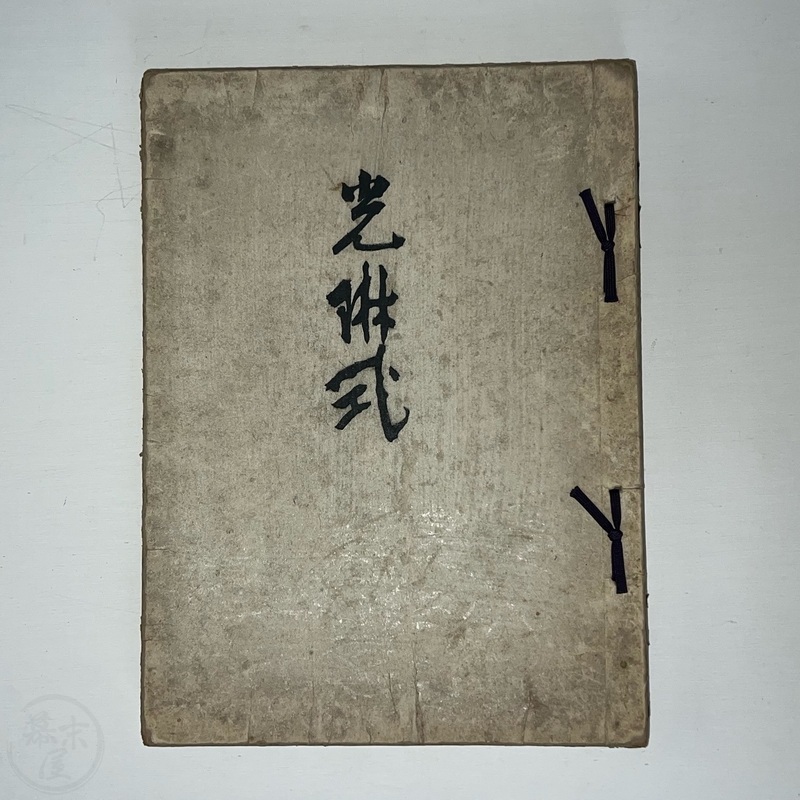 光琳式
幕末屋